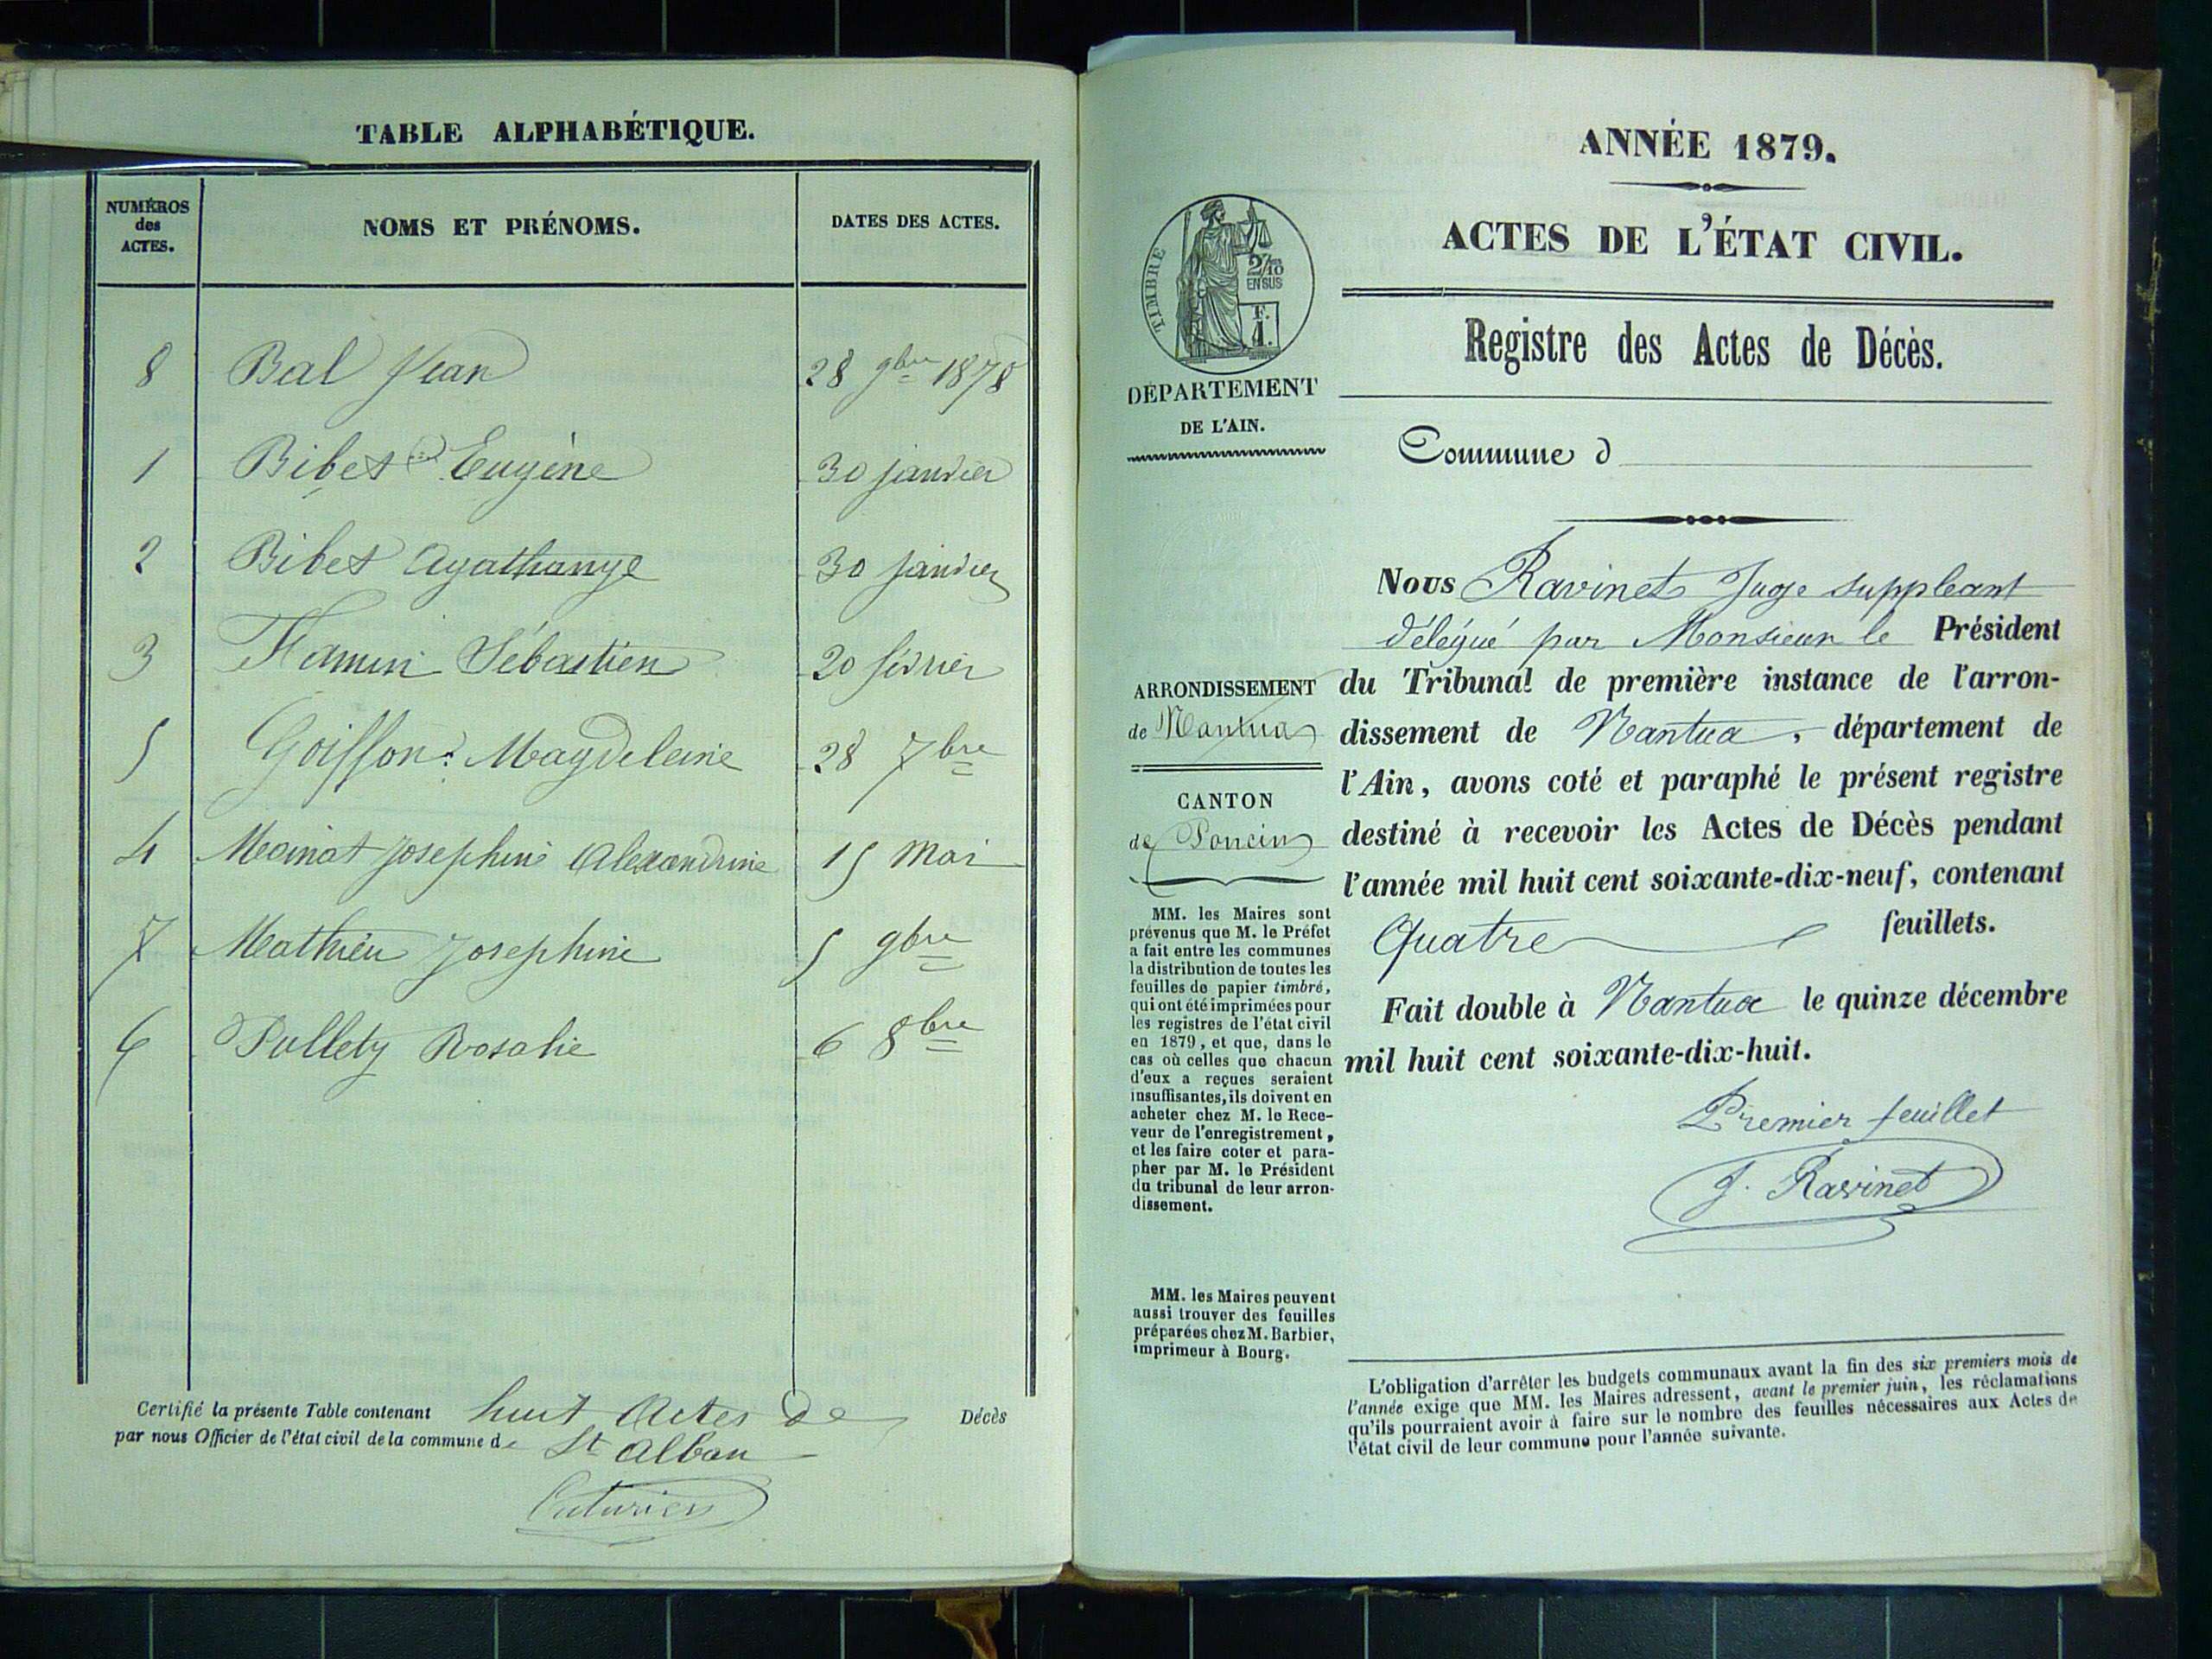 TABLE ALPHABÉTIQUE.
NUMÉROS des ACTES. NOMS ET PRÉNOMS. DATES DES ACTES.
8 Bal Jean 28 9bre 1878
1 Bibet Eugène 30 janvier
2 Bibet Agathange 30 janvier
3 Hamin Sébastien 20 février
5 Goiffon Magdeleine 28 7bre
4 Moinat Josephine Alexandrine 15 Mai
7 Mathieu Josephine 5 9bre
6 Pullety Rosalie 6 8bre
Certifié la présente Table contenant huit Actes de Décès
par nous Officier de l'état civil de la commune de St Alban
ANNÉE 1879.
ACTES DE L'ÉTAT CIVIL.
Registre des Actes de Décès.
TIMBRE
2/10
EN SUS
F.
1.
DÉPARTEMENT
DE L'AIN.
Commune d
ARRONDISSEMENT
de Nantua
CANTON
de Poncin
MM. les Maires sont
prévenus que M. le Préfet
a fait entre les communes
la distribution de toutes les
feuilles de papier timbré,
qui ont été imprimées pour
les registres de l'état civil
en 1879, et que, dans le
cas où celles que chacun
d'eux a reçues seraient
insuffisantes, ils doivent en
acheter chez M. le Rece-
veur de l'enregistrement,
et les faire coter et para-
pher par M. le Président
du tribunal de leur arron-
dissement.
MM. les Maires peuvent
aussi trouver des feuilles
préparées chez M. Barbier,
imprimeur à Bourg.
Nous Ravinet Juge suppleant
délégué par Monsieur le Président
du Tribunal de première instance de l'arron-
dissement de Nantua, département de
l'Ain, avons coté et paraphé le présent registre
destiné à recevoir les Actes de Décès pendant
l'année mil huit cent soixante-dix-neuf, contenant
Quatre feuillets.
Fait double à Nantua le quinze décembre
mil huit cent soixante-dix-huit.
Premier feuillet
J. Ravinet
L'obligation d'arrêter les budgets communaux avant la fin des six premiers mois de
l'année exige que MM. les Maires adressent, avant le premier juin, les réclamations
qu'ils pourraient avoir à faire sur le nombre des feuilles nécessaires aux Actes de
l'état civil de leur commune pour l'année suivante.